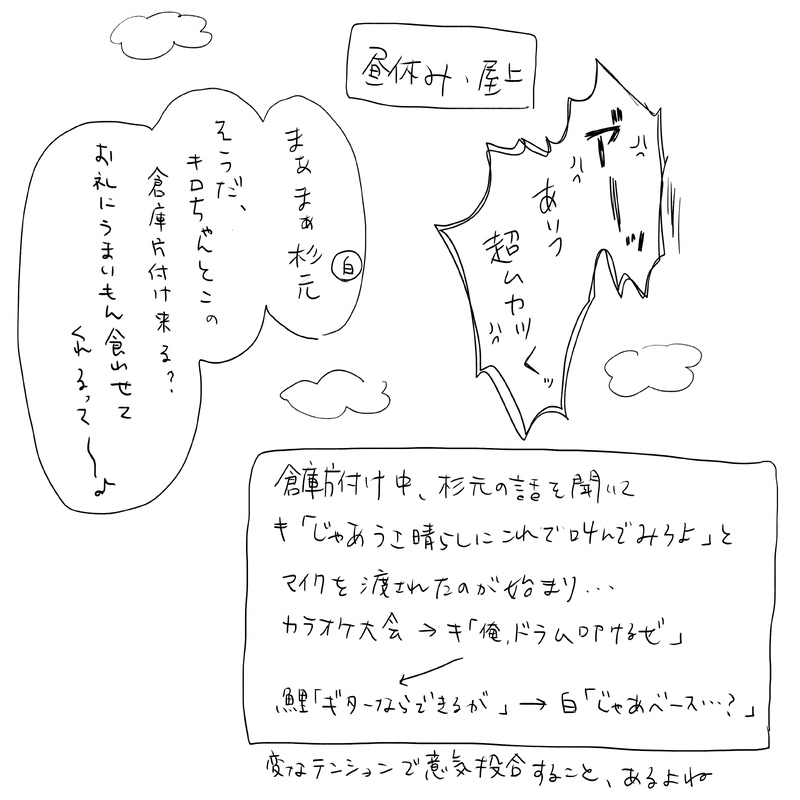 昼休み、屋上
アーッ
あいつ
超ムカツくッ
まぁまぁ杉元
白
そうだ、
キロちゃんとこの
倉庫片付け来る?
お礼にうまいもん食わせて
くれるって〜♪
倉庫片付け中、杉元の話を聞いて
キ「じゃあうさ晴らしにこれで叫んでみろよ」と
マイクを渡されたのが始まり…
カラオケ大会→キ「俺、ドラム叩けるぜ」
鯉「ギターならできるが」→白「じゃあベース…?」
変なテンションで意気投合すること、あるよね